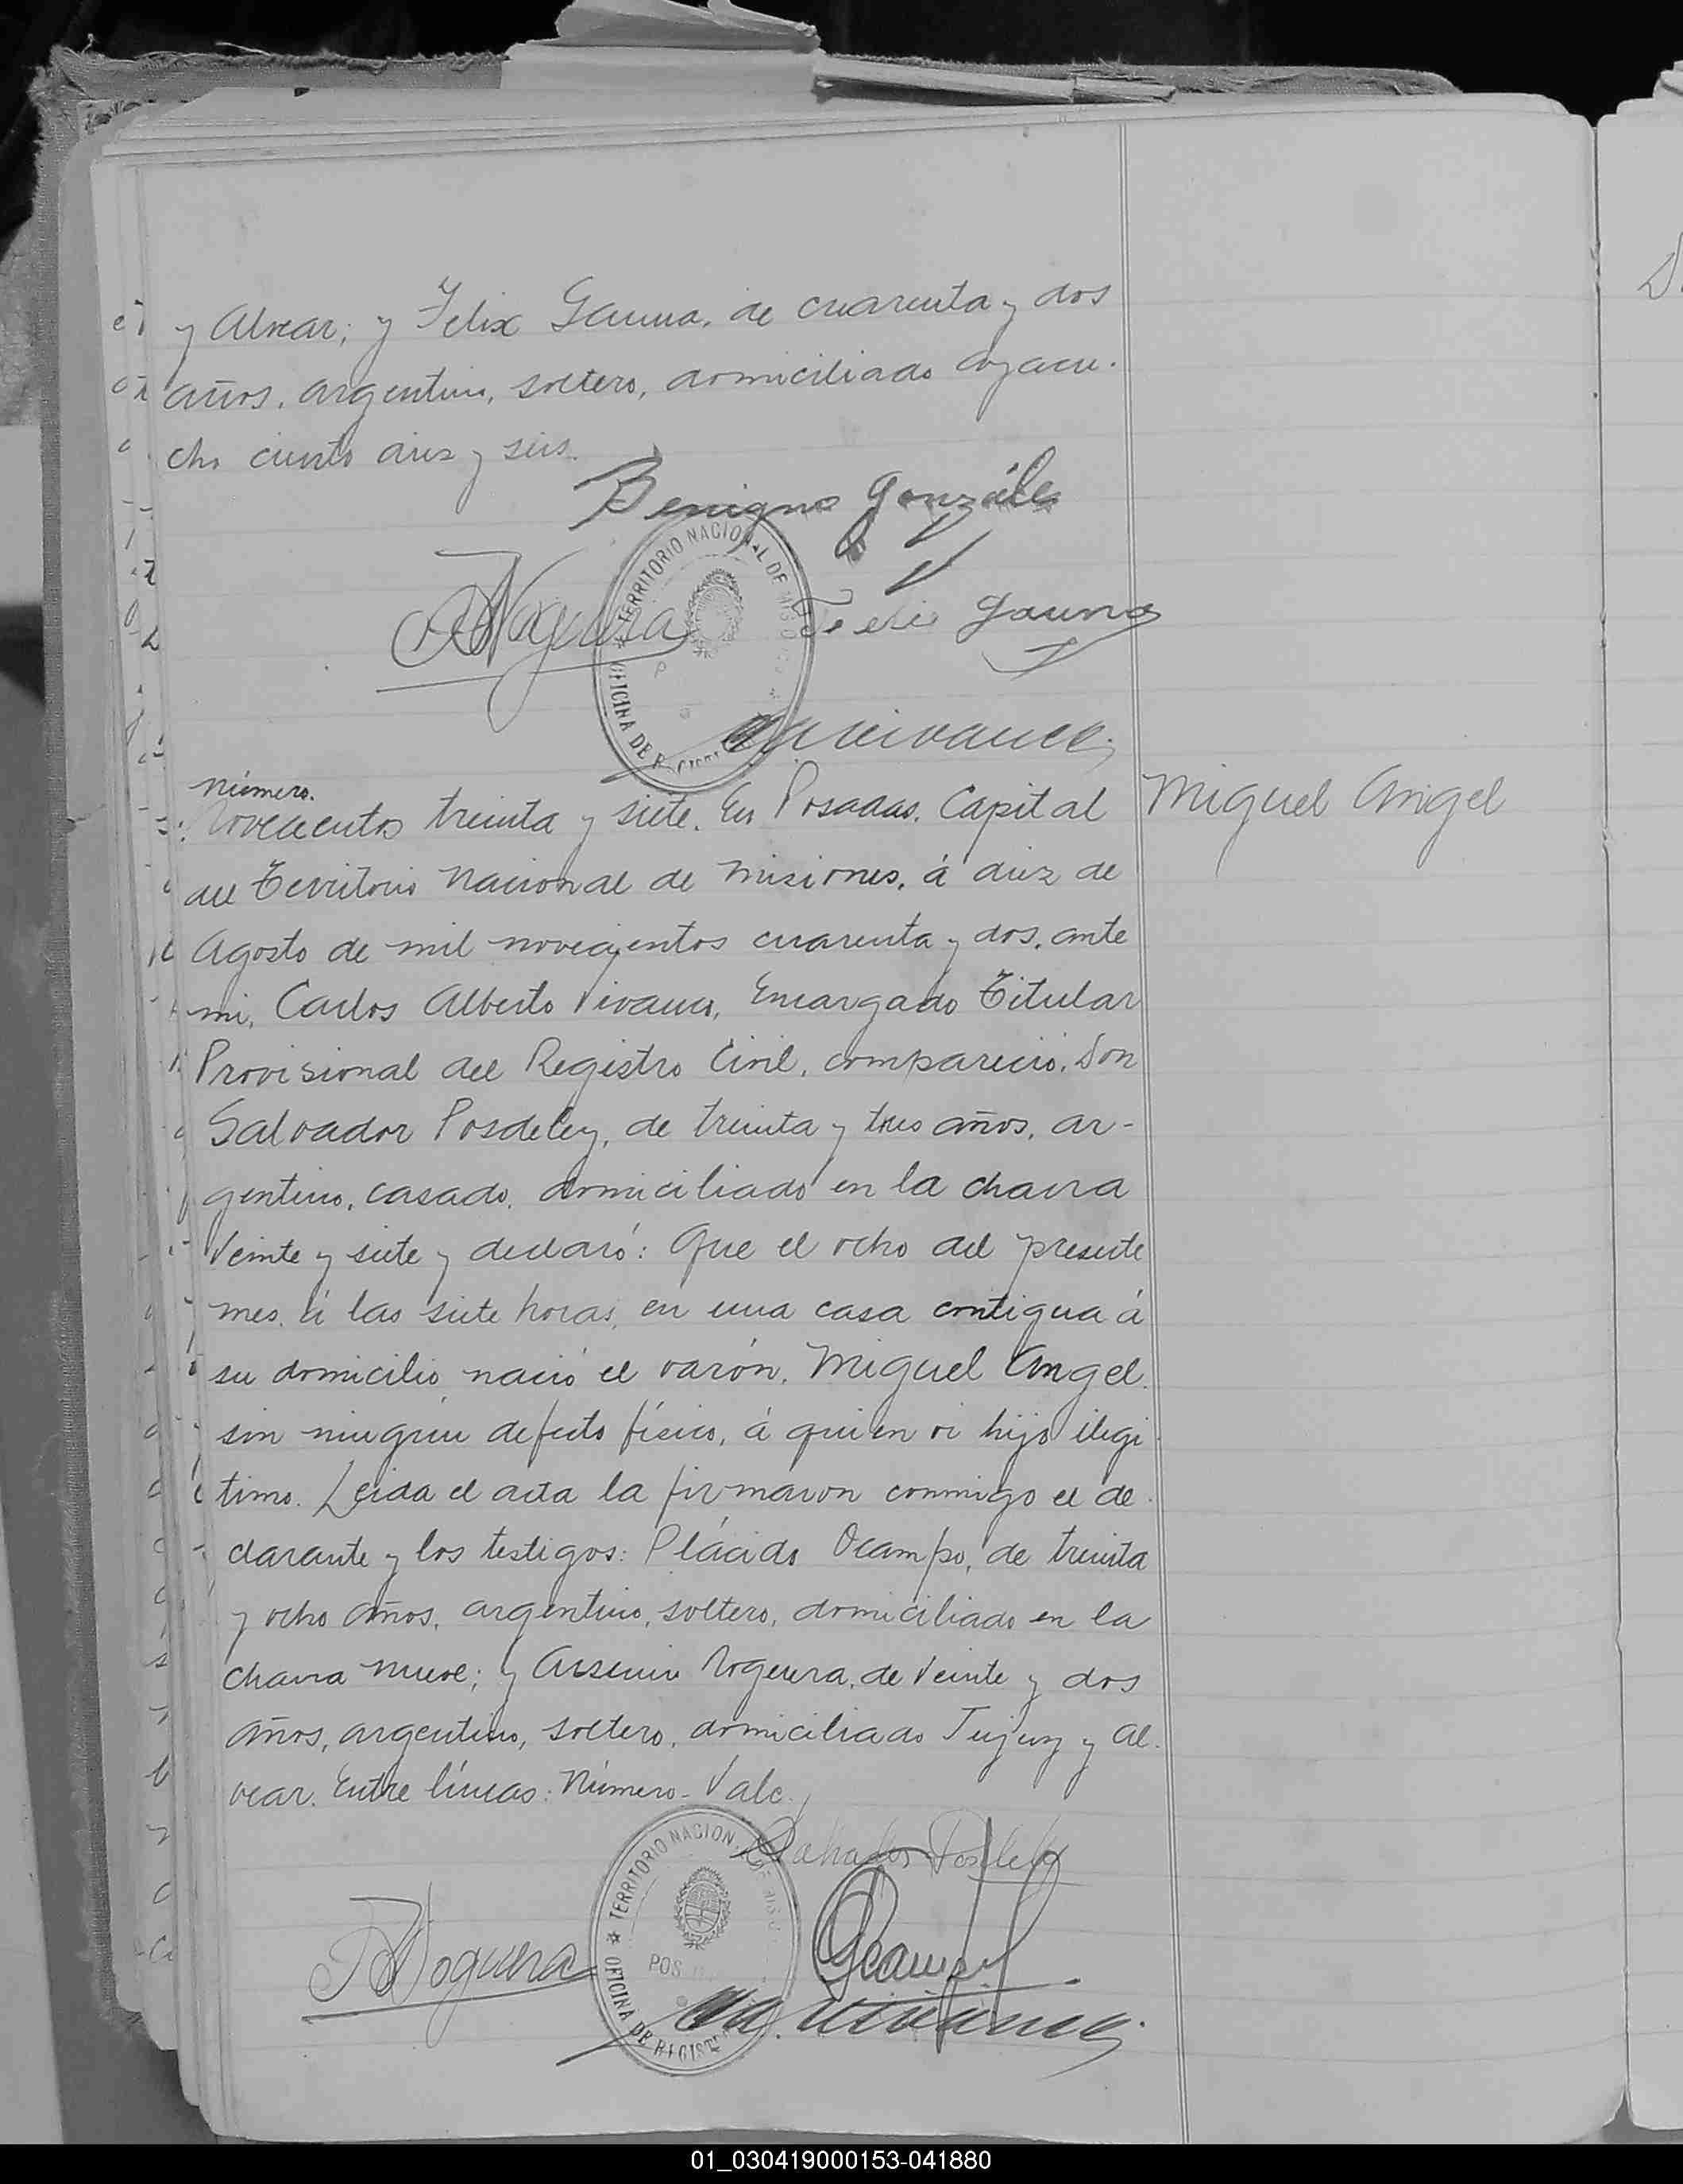 y Alvear; y Felix Gauna, de cuarenta y dos
años, argentino, soltero, domiciliado Ayacu-
cho ciento diez y seis.
Benigno González
TERRITORIO NACIONAL DE MISIONES
OFICINA DE REGISTRO
Noguera
Felix Gauna
Vivanco
Número.
Novecientos treinta y siete. En Posadas, Capital
Miguel Angel
del Territorio Nacional de Misiones, á diez de
Agosto de mil novecientos cuarenta y dos, ante
mi, Carlos Alberto Vivanco, Encargado Titular
Provisional del Registro Civil, compareció, Don
Salvador Posdeley, de treinta y tres años, ar-
gentino, casado, domiciliado en la chacra
Veinte y siete y declaró: Que el ocho del presente
mes, á las siete horas, en una casa contigua á
su domicilio nació el varón, Miguel Angel
sin ningún defecto físico, á quien vi hijo ilegi-
timo. Leida el acta la firmaron conmigo el de-
clarante y los testigos: Plácido Ocampo, de treinta
y ocho años, argentino, soltero, domiciliado en la
chacra nueve; y Arsenio Noguera, de Veinte y dos
años, argentino, soltero, domiciliado Jujuy y Al-
vear. Entre líneas: Número - Vale.
TERRITORIO NACIONAL DE
POS
OFICINA DE REGISTRO
Salvador Posdeley
Noguera
Ocampo
Vivanco
01_030419000153-041880